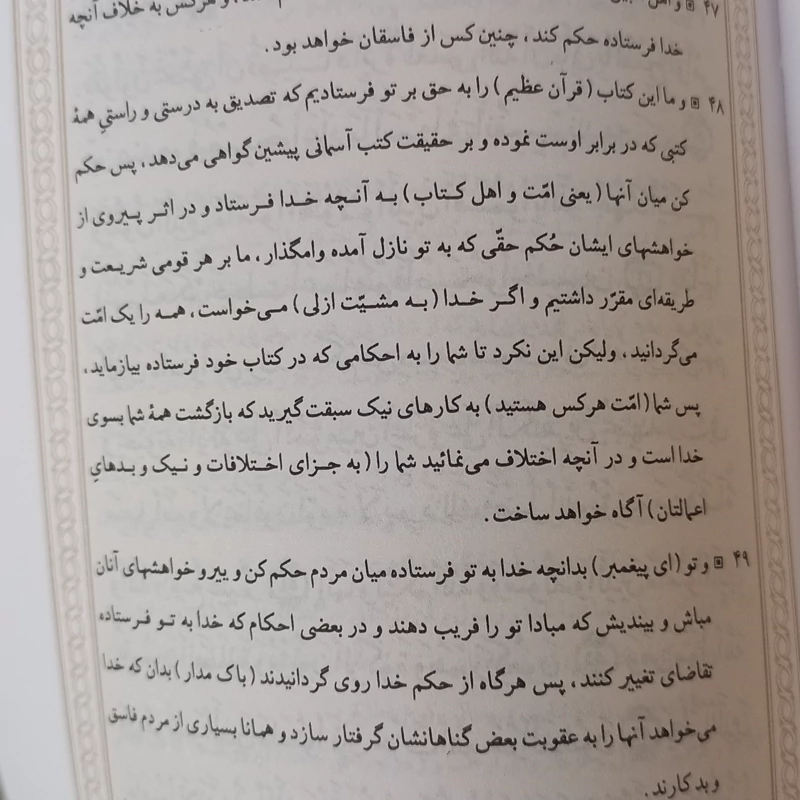 ۴۷ و اهل و هرکس به خلاف آنچه
خدا فرستاده حکم کند، چنین کس از فاسقان خواهد بود.
۴۸ و ما این کتاب (قرآن عظیم) را به حق بر تو فرستادیم که تصدیق به درستی و راستیِ همهٔ
کتبی که در برابر اوست نموده و بر حقیقت کتب آسمانی پیشین گواهی می‌دهد، پس حکم
کن میان آنها (یعنی امّت و اهل کتاب) به آنچه خدا فرستاد و در اثر پیروی از
خواهشهای ایشان حُکم حقّی که به تو نازل آمده وامگذار، ما بر هر قومی شریعت و
طریقه‌ای مقرّر داشتیم و اگر خدا (به مشیّت ازلی) می‌خواست، همه را یک امّت
می‌گردانید، ولیکن این نکرد تا شما را به احکامی که در کتاب خود فرستاده بیازماید،
پس شما (امّت هرکس هستید) به کارهای نیک سبقت گیرید که بازگشت همهٔ شما بسوی
خدا است و در آنچه اختلاف می‌نمائید شما را (به جزای اختلافات و نیک و بدهایِ
اعمالتان) آگاه خواهد ساخت.
۴۹ و تو (ای پیغمبر) بدانچه خدا به تو فرستاده میان مردم حکم کن و پیرو خواهشهای آنان
مباش و بیندیش که مبادا تو را فریب دهند و در بعضی احکام که خدا به تو فرستاده
تقاضای تغییر کنند، پس هرگاه از حکم خدا روی گردانیدند (باک مدار) بدان که خدا
می‌خواهد آنها را به عقوبت بعض گناهانشان گرفتار سازد و همانا بسیاری از مردم فاسق
و بدکارند.